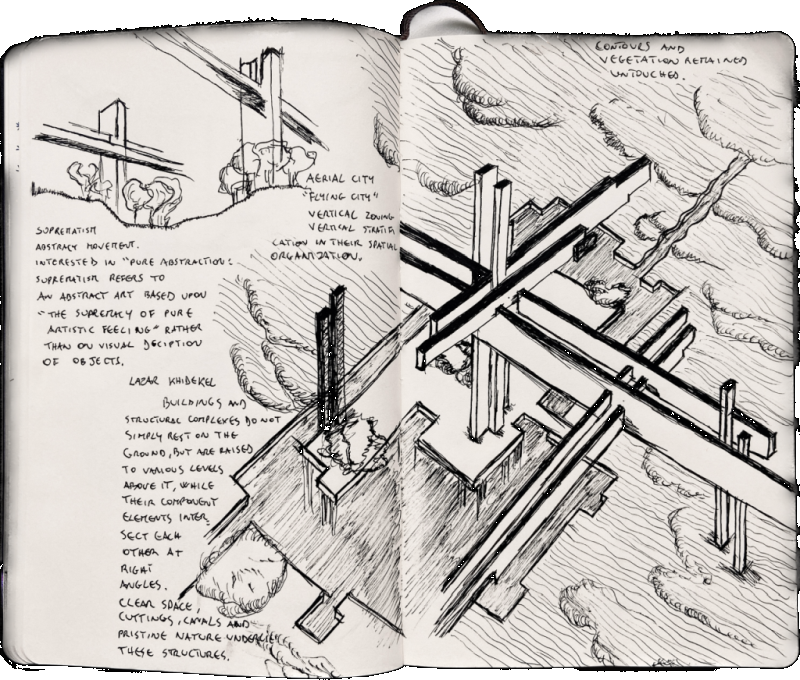 CONTOURS AND
VEGETATION RETAINED
UNTOUCHED.
AERIAL CITY
"FLYING CITY"
VERTICAL ZONING
VERTICAL STRATIFI
CATION IN THEIR SPATIAL
ORGANIZATION.
SUPREMATISM
ABSTRACT MOVEMENT.
INTERESTED IN "PURE ABSTRACTION".
SUPREMATISM REFERS TO
AN ABSTRACT ART BASED UPON
"THE SUPREMACY OF PURE
ARTISTIC FEELING" RATHER
THAN ON VISUAL DEICPTION
OF OBJECTS.
LAZAR KHIDEKEL
BUILDINGS AND
STRUCTURAL COMPLEXES DO NOT
SIMPLY REST ON THE
GROUND, BUT ARE RAISED
TO VARIOUS LEVELS
ABOVE IT, WHILE
THEIR COMPONENT
ELEMENTS INTER
SECT EACH
OTHER AT
RIGHT
ANGLES.
CLEAR SPACE,
CUTTINGS, CANALS AND
PRISTINE NATURE UNDERLIE
THESE STRUCTURES.